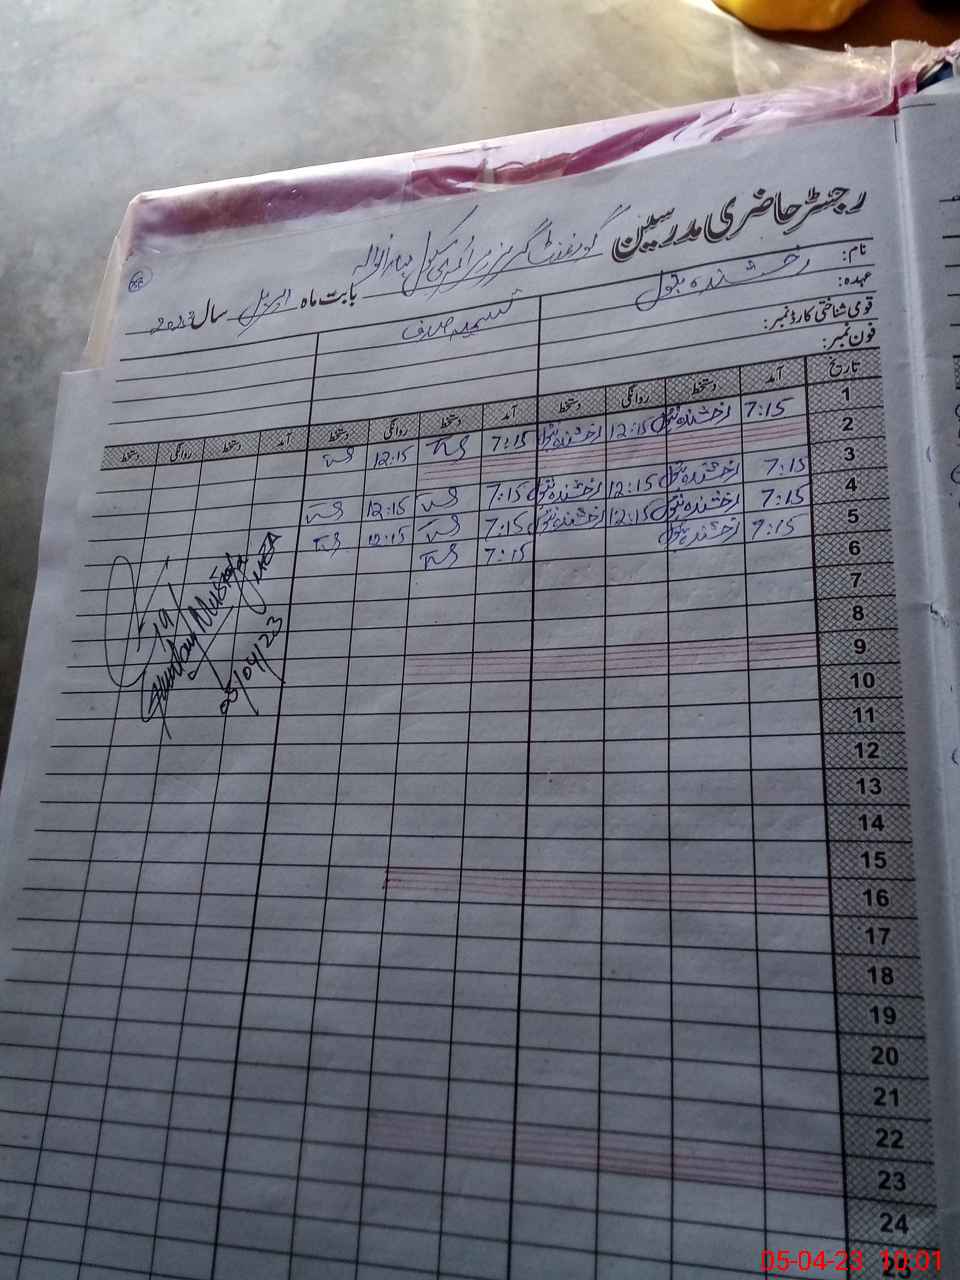 رجسٹر حاضری مدرسین گورنمنٹ گرلز پرائمری سکول بابت ماہ اپریل سال 2023
نام: رخشندہ بتول
عہدہ:
قومی شناختی کارڈ نمبر:
فون نمبر:
تاریخ آمد دستخط روانگی دستخط آمد دستخط روانگی دستخط آمد دستخط روانگی دستخط
1 7:15 رخشندہ بتول 12:15 رخشندہ بتول 7:15 12:15
2
3 7:15 رخشندہ بتول 12:15 رخشندہ بتول 7:15 12:15
4 7:15 رخشندہ بتول 12:15 رخشندہ بتول 7:15 12:15
5 رخشندہ بتول 7:15
6
7
8
9
10
11
12
13
14
15
16
17
18
19
20
21
22
23
24
05/04/23
05-04-23 10:01